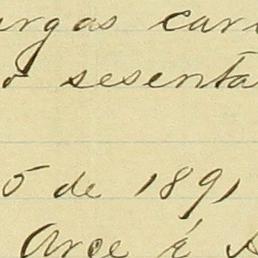 urgas car
o sesenta
5 de 1891
Arce é